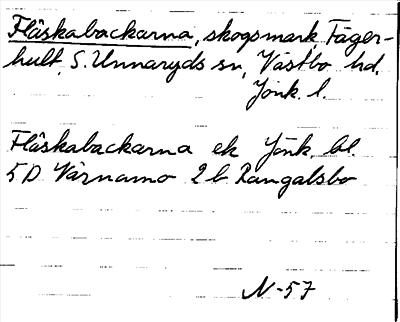 Flåskabackarna, skogsmark, Fäger-
hult, S. Unnaryds sn, Västbo hd,
Jönk. l.
Flåskabackarna ek Jönk. bl.
5 D Värnamo 2 b Rangalsbo
N-57